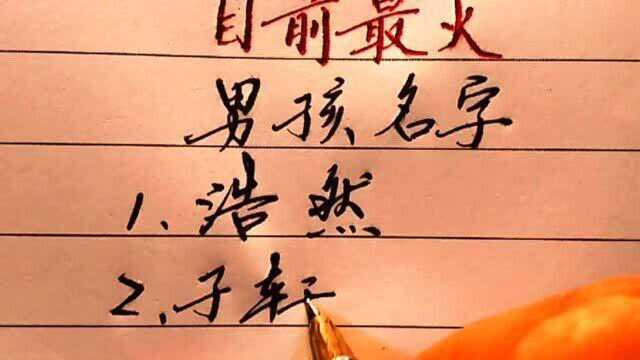 目前最火
男孩名字
1、浩然
2、子轩